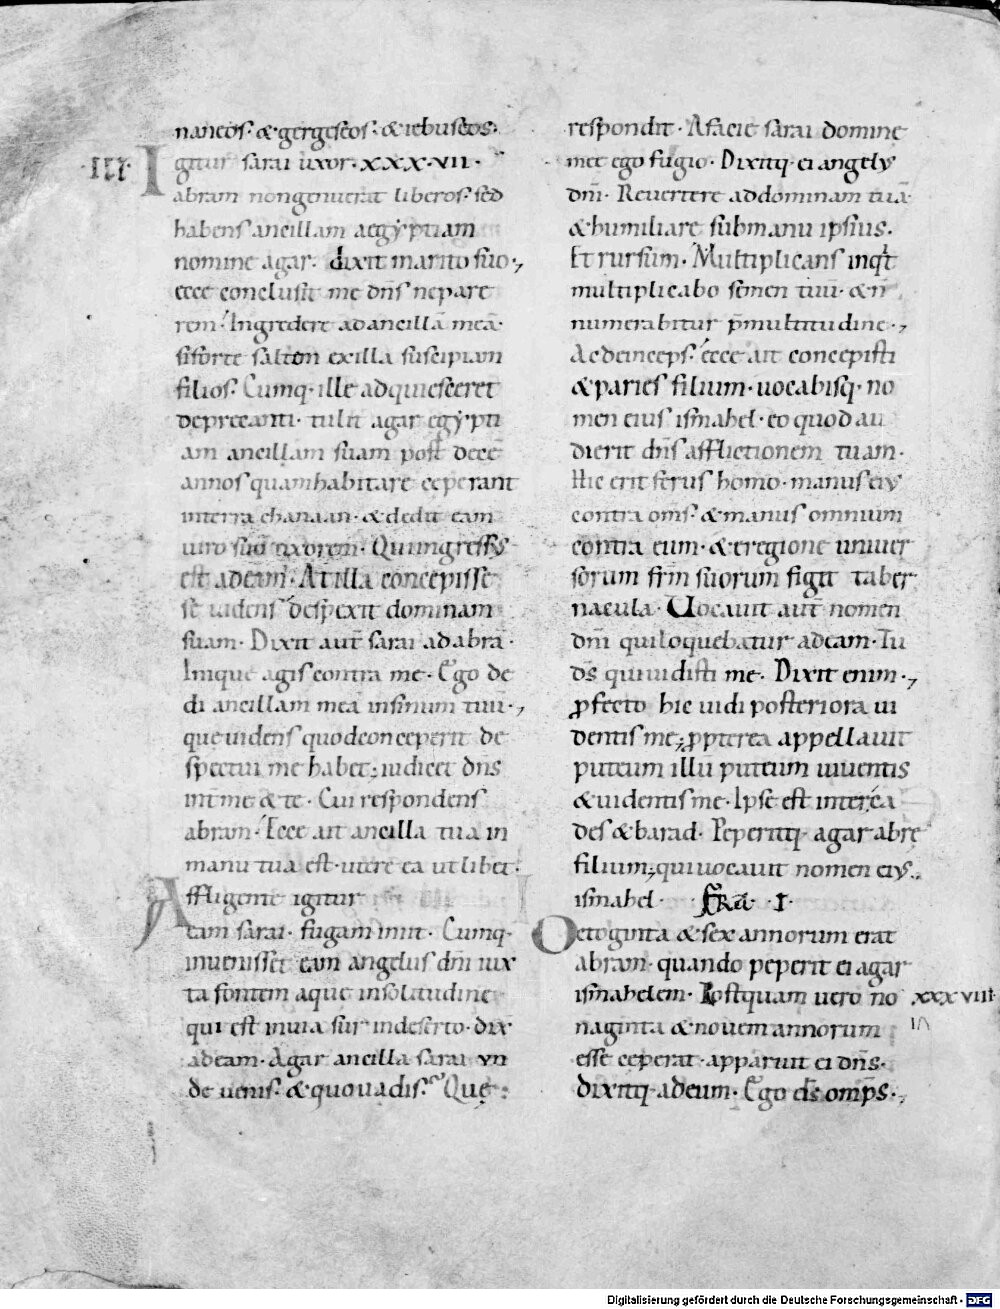 naneos· & gergeseos· & iebuseos·
·III· Igitur sarai uxor· XXXVII·
abram non genuerat liberos· sed
habens ancillam aegyptiam
nomine agar· dixit marito suo·,
ecce conclusit me dn̄s ne pare
rem· Ingredere ad ancillā meā·
si forte saltem ex illa suscipiam
filios· Cumq· ille adquiesceret
deprecanti· tulit agar egypti
am ancillam suam post decē
annos quam habitare ceperant
in terra chanaan· & dedit eam
uiro suo uxorem· Qui ingressus
est ad eam· At illa concepisse
se uidens despexit dominam
suam· Dixit aut̄ sarai ad abrā·
Inique agis contra me· Ego de
di ancillam meā in sinum tuū·,
que uidens quod conceperit de
spectui me habet; iudicet dn̄s
int̄ me & te· Cui respondens
abram· Ecce ait ancilla tua in
manu tua est· utere ea ut libet·
Affligente igitur
eam sarai· fugam iniit· Cumq·
inuenisset eam angelus dn̄i iux
ta fontem aque in solitudine
qui est in uia sur in deserto· dix̄
ad eam· Agar ancilla sarai un
de uenis· & quo uadis· Quę
respondit· A facie sarai domine
mee ego fugio· Dixitq· ei angelus
dn̄i· Reuertere ad dominam tuā·
& humiliare sub manu ipsius·
Et rursum· Multiplicans inq̄t
multiplicabo semen tuū· & n̄
numerabitur p̄ multitudine·,
Ac deinceps· ecce ait concepisti
& paries filium· uocabisq· no
men eius ismahel· eo quod au
dierit dn̄s afflictionem tuam·
Hic erit ferus homo· manus eius
contra om̄s· & manus omnium
contra eum· & e regione uniuer
sorum fr̄m suorum figit taber
nacula· Uocauit aut̄ nomen
dn̄i qui loquebatur ad eam· Tu
ds̄ qui uidisti me· Dixit enim·,
ꝓfecto hic uidi posteriora ui
dentis me; ꝓpterea appellauit
puteum illū puteum uiuentis
& uidentis me· Ipse est inter ca
des & barad· Peperitq· agar abrę
filium; qui uocauit nomen eius·
ismahel· F̄R̄A· I·
Octoginta & sex annorum erat
abram· quando peperit ei agar
ismahelem· Postquam uero no XXXVIII
naginta & nouem annorum
esse ceperat· apparuit ei dn̄s·
dixitq· ad eum· Ego ds̄ omps̄·,
Digitalisierung gefördert durch die Deutsche Forschungsgemeinschaft - DFG